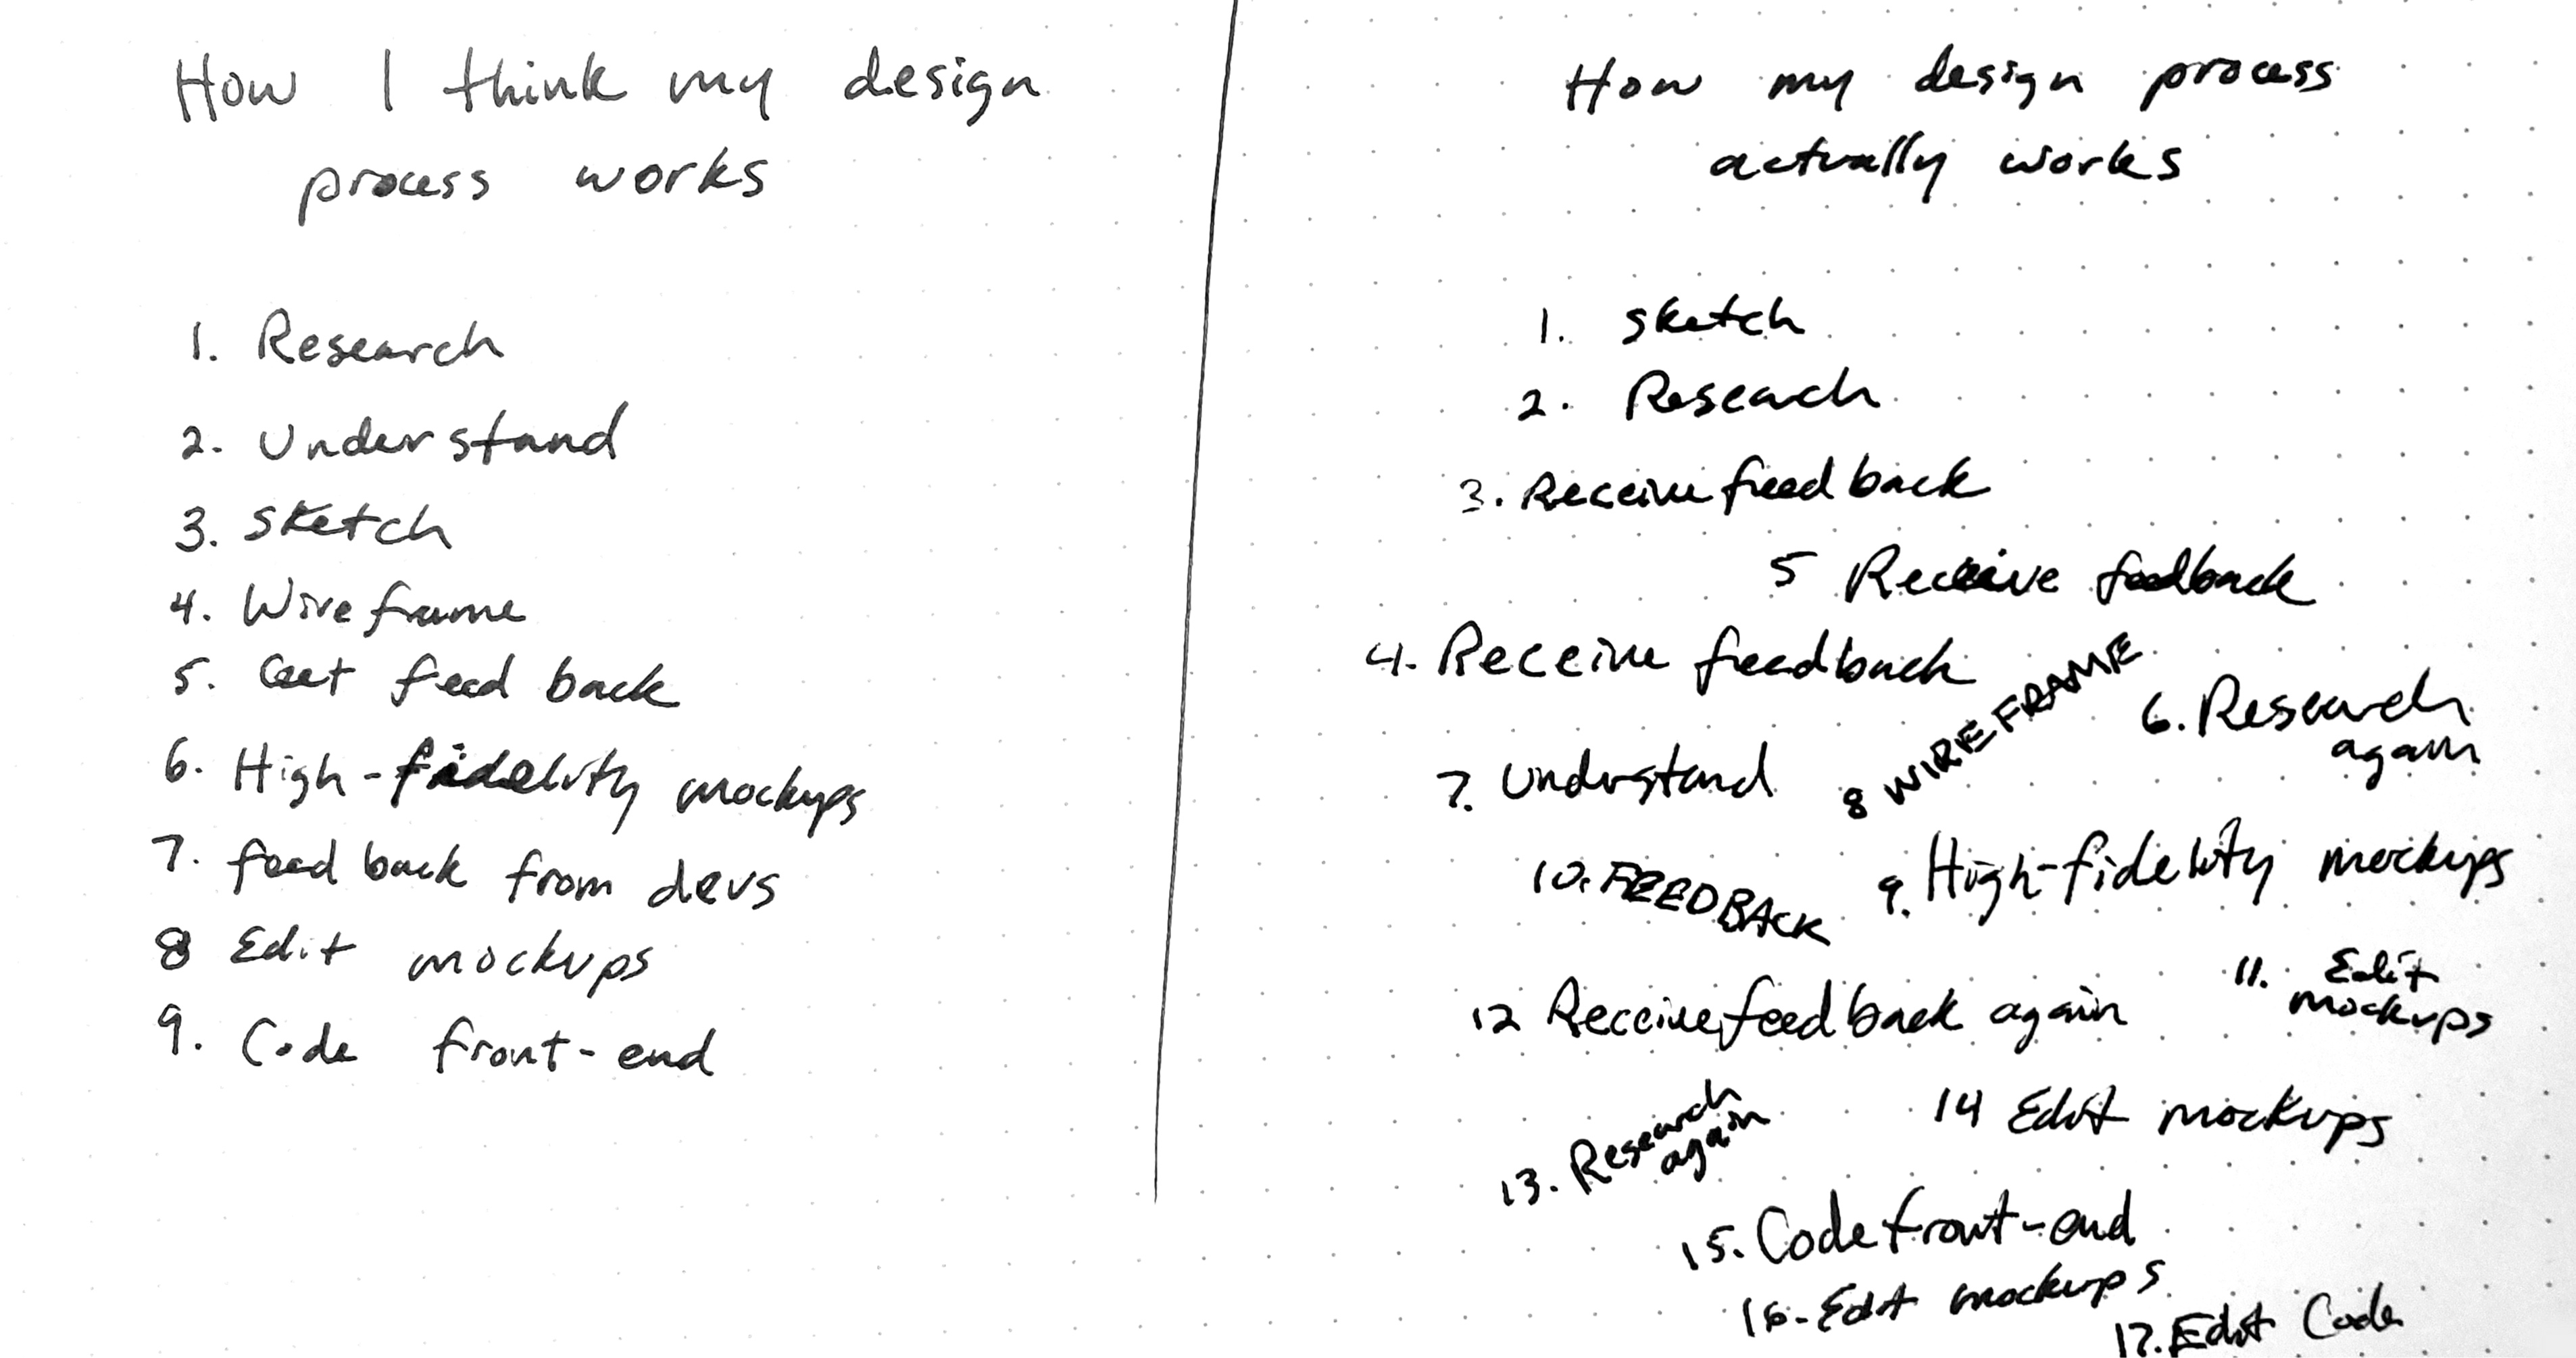 How I think my design
process works
1. Research
2. Understand
3. Sketch
4. Wireframe
5. Get feedback
6. High-fidelity mockups
7. feedback from devs
8 Edit mockups
9. Code front-end
How my design process
actually works
1. Sketch
2. Research
3. Receive feedback
5 Receive feedback
4. Receive feedback
6. Research
again
7. Understand
8 WIREFRAME
9. High-fidelity mockups
10. FEEDBACK
11. Edit
mockups
12 Receive feedback again
13. Research
again
14 Edit mockups
15. Code front-end
16. Edit mockups
17. Edit Code